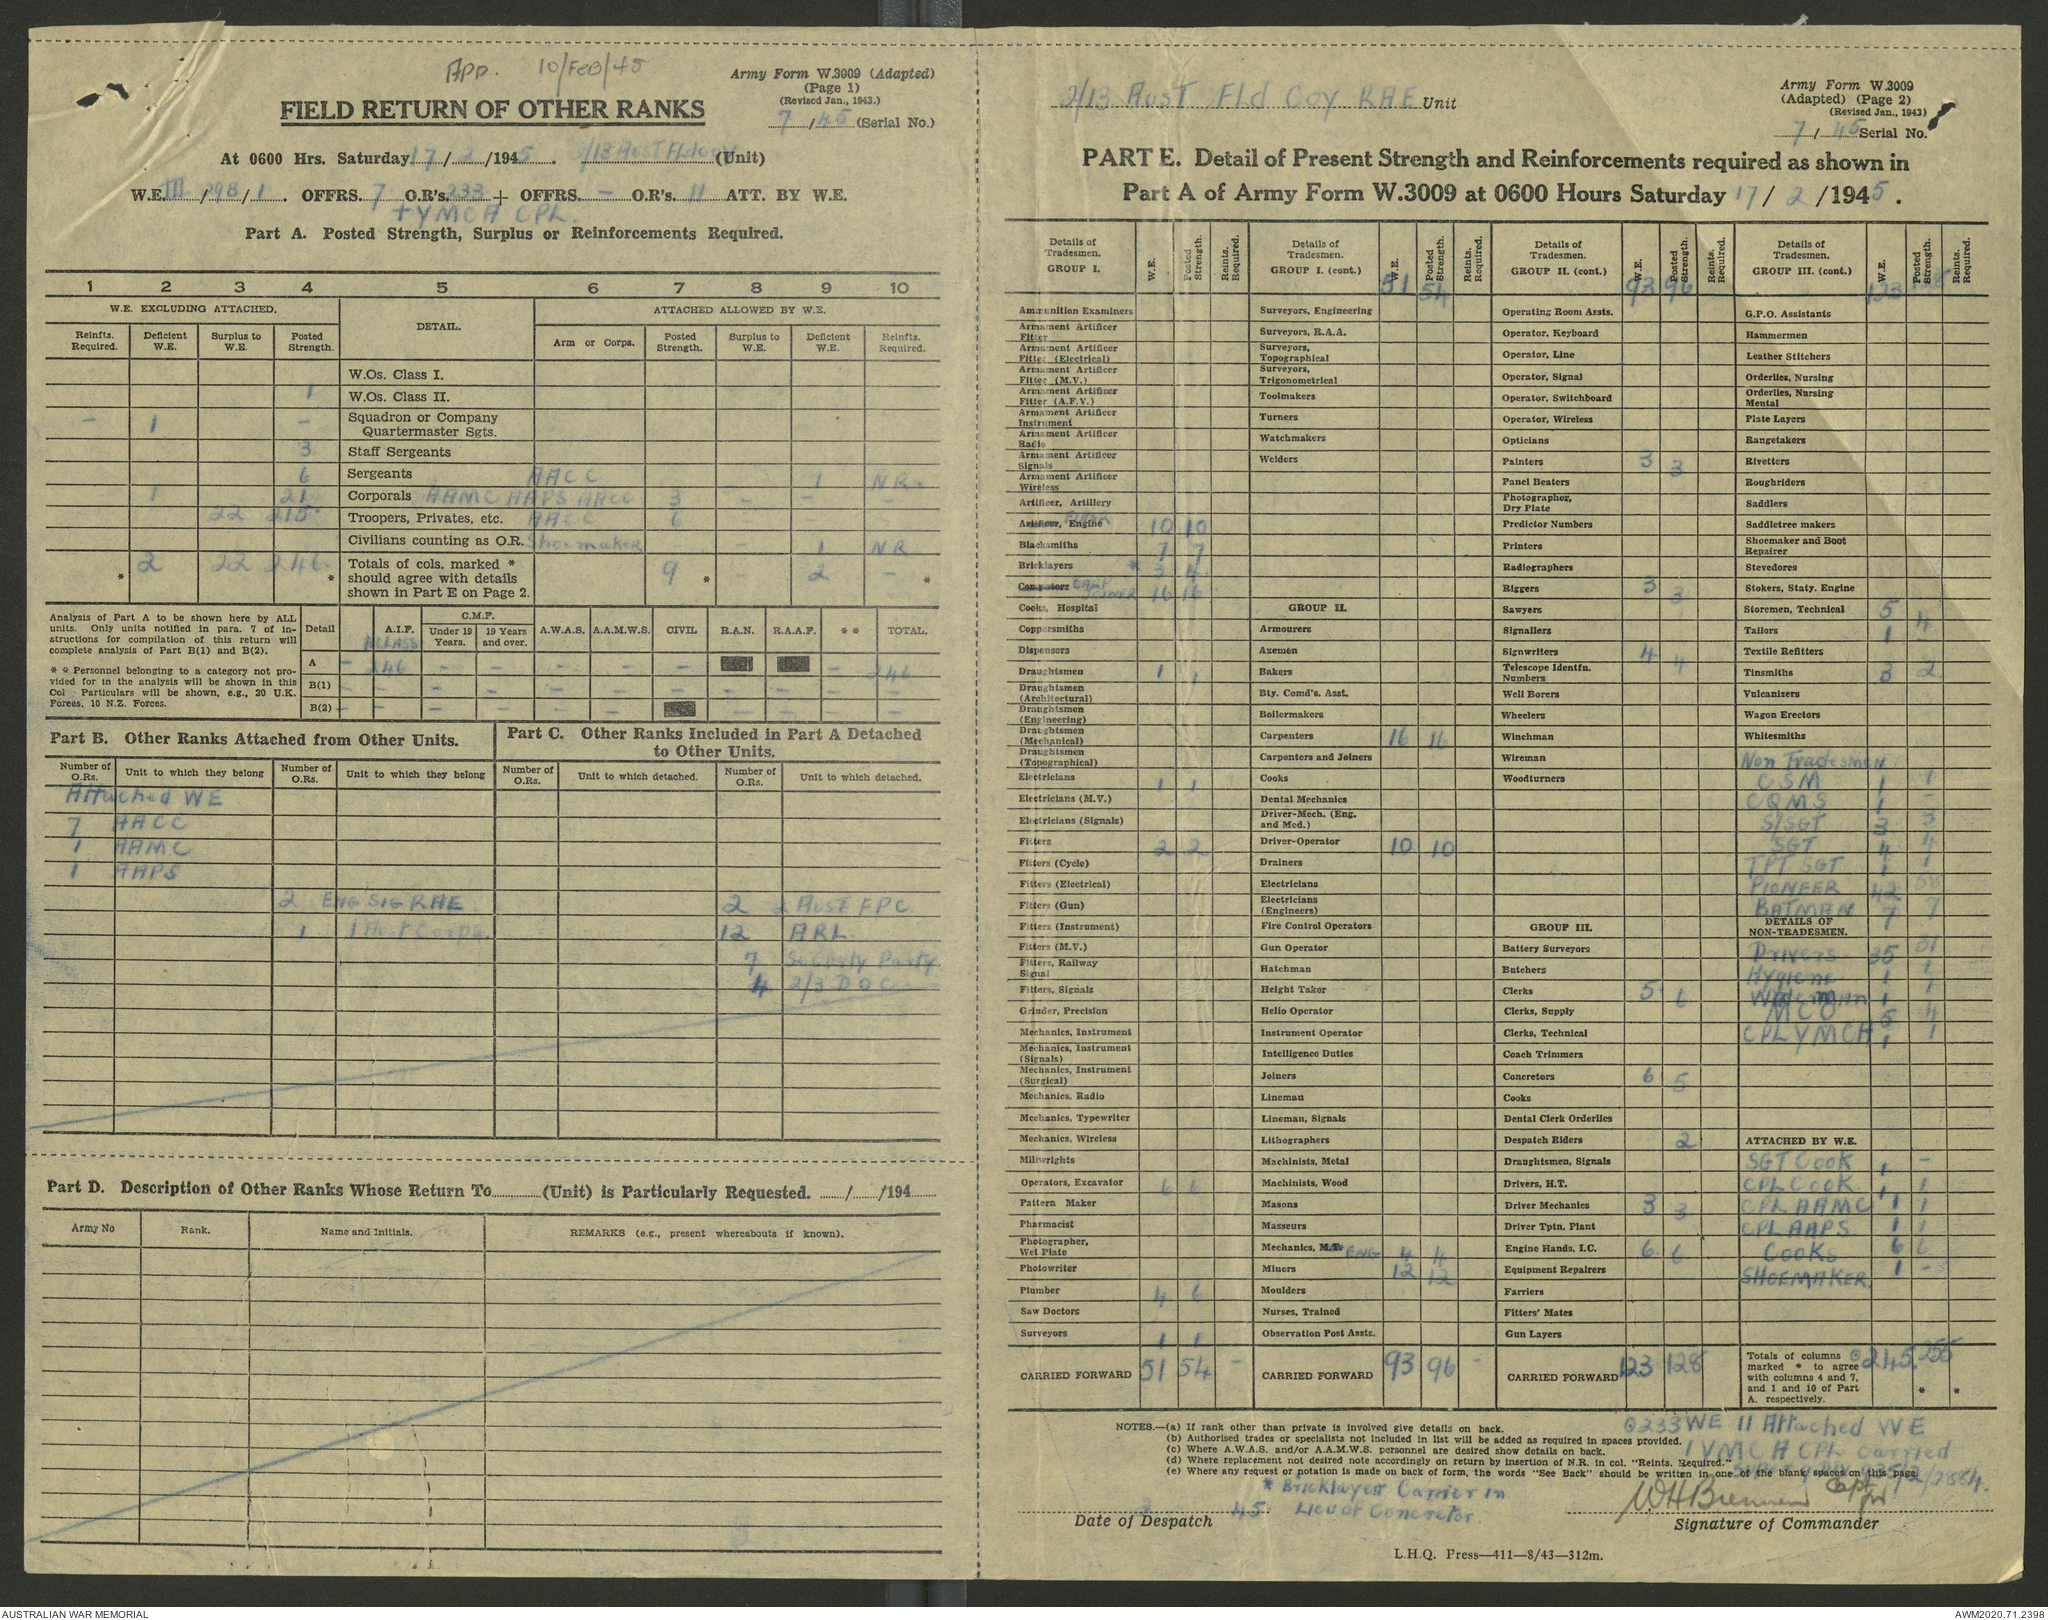 App. 10/Feb/45
Army Form W.3009 (Adapted)
(Page 1)
(Revised Jan., 1943.)
7/45 (Serial No.)
FIELD RETURN OF OTHER RANKS
At 0600 Hrs. Saturday 17/2/1945. 2/13 Aust Fld Coy (Unit)
W.E. III/29B/1. OFFRS. 7 O.R's. 233 + OFFRS. – O.R's. 11 ATT. BY W.E.
+ YMCA CPL.
Part A. Posted Strength, Surplus or Reinforcements Required.
1 2 3 4 5 6 7 8 9 10
W.E. EXCLUDING ATTACHED. DETAIL. ATTACHED ALLOWED BY W.E.
Reinfts. Required. Deficient W.E. Surplus to W.E. Posted Strength. Arm or Corps. Posted Strength. Surplus to W.E. Deficient W.E. Reinfts. Required.
W.Os. Class I.
1 W.Os. Class II.
– 1 – Squadron or Company Quartermaster Sgts.
3 Staff Sergeants
6 Sergeants AACC 1 NR.
1 21 Corporals AAMC AAPS AACC 3 – – –
22 215 Troopers, Privates, etc. AACC 6
Civilians counting as O.R. Shoemaker – 1 NR
* 2 22 246 * Totals of cols. marked * should agree with details shown in Part E on Page 2. 9 * – 2 – *
Analysis of Part A to be shown here by ALL units. Only units notified in para. 7 of instructions for compilation of this return will complete analysis of Part B(1) and B(2).
* * Personnel belonging to a category not provided for in the analysis will be shown in this Col. Particulars will be shown, e.g., 20 U.K. Forces, 10 N.Z. Forces.
Detail A.I.F. C.M.F. Under 19 Years. 19 Years and over. A.W.A.S. A.A.M.W.S. CIVIL R.A.N. R.A.A.F. * * TOTAL.
A – 246 – – – – – – 246
B(1) – – – – – – – – – –
B(2) – – – – – – – – –
Part B. Other Ranks Attached from Other Units.
Number of O.Rs. Unit to which they belong Number of O.Rs. Unit to which they belong
Attached WE
7 AACC
1 AAMC
1 AAPS
2 ENG SIG RAE
1 1 Aust Corps.
Part C. Other Ranks Included in Part A Detached to Other Units.
Number of O.Rs. Unit to which detached. Number of O.Rs. Unit to which detached.
2 2 Aust FPC
12 ARL
7 Security Party
4 2/3 DOC
Part D. Description of Other Ranks Whose Return To (Unit) is Particularly Requested. / /194
Army No Rank. Name and Initials. REMARKS (e.g., present whereabouts if known).
2/13 Aust Fld Coy RAE Unit
Army Form W.3009
(Adapted) (Page 2)
(Revised Jan., 1943)
7/45 Serial No.
PART E. Detail of Present Strength and Reinforcements required as shown in
Part A of Army Form W.3009 at 0600 Hours Saturday 17/2/1945.
Details of Tradesmen. GROUP I. W.E. Posted Strength. Reints. Required.
Ammunition Examiners
Armament Artificer Fitter
Armament Artificer Fitter (Electrical)
Armament Artificer Fitter (M.V.)
Armament Artificer Fitter (A.F.V.)
Armament Artificer Instrument
Armament Artificer Radio
Armament Artificer Signals
Armament Artificer Wireless
Artificer, Artillery
Artificer, Engine 10 10
Blacksmiths 7 7
Bricklayers * 3 4
Computors CARP JOINER 16 16
Cooks, Hospital
Coppersmiths
Dispensers
Draughtsmen 1 1
Draughtsmen (Architectural)
Draughtsmen (Engineering)
Draughtsmen (Mechanical)
Draughtsmen (Topographical)
Electricians 1 1
Electricians (M.V.)
Electricians (Signals)
Fitters 2 2
Fitters (Cycle)
Fitters (Electrical)
Fitters (Gun)
Fitters (Instrument)
Fitters (M.V.)
Fitters, Railway Signal
Fitters, Signals
Grinder, Precision
Mechanics, Instrument
Mechanics, Instrument (Signals)
Mechanics, Instrument (Surgical)
Mechanics, Radio
Mechanics, Typewriter
Mechanics, Wireless
Millwrights
Operators, Excavator 6 6
Pattern Maker
Pharmacist
Photographer, Wet Plate
Photowriter
Plumber 4 6
Saw Doctors
Surveyors 1 1
CARRIED FORWARD 51 54 –
Details of Tradesmen. GROUP I. (cont.) W.E. 51 Posted Strength. 54 Reints. Required.
Surveyors, Engineering
Surveyors, R.A.A.
Surveyors, Topographical
Surveyors, Trigonometrical
Toolmakers
Turners
Watchmakers
Welders
GROUP II.
Armourers
Axemen
Bakers
Bty. Comd's. Asst.
Boilermakers
Carpenters 16 16
Carpenters and Joiners
Cooks
Dental Mechanics
Driver-Mech. (Eng. and Med.)
Driver-Operator 10 10
Drainers
Electricians
Electricians (Engineers)
Fire Control Operators
Gun Operator
Hatchman
Height Taker
Helio Operator
Instrument Operator
Intelligence Duties
Joiners
Lineman
Lineman, Signals
Lithographers
Machinists, Metal
Machinists, Wood
Masons
Masseurs
Mechanics, M.T. ENG 4 4
Miners 12 12
Moulders
Nurses, Trained
Observation Post Assts.
CARRIED FORWARD 93 96 –
Details of Tradesmen. GROUP II. (cont.) W.E. 93 Posted Strength. 96 Reints. Required.
Operating Room Assts.
Operator, Keyboard
Operator, Line
Operator, Signal
Operator, Switchboard
Operator, Wireless
Opticians
Painters 3 3
Panel Beaters
Photographer, Dry Plate
Predictor Numbers
Printers
Radiographers
Riggers 3 3
Sawyers
Signallers
Signwriters 4 4
Telescope Identfn. Numbers
Well Borers
Wheelers
Winchman
Wireman
Woodturners
GROUP III.
Battery Surveyors
Butchers
Clerks 5 6
Clerks, Supply
Clerks, Technical
Coach Trimmers
Concretors 6 5
Cooks
Dental Clerk Orderlies
Despatch Riders 2
Draughtsmen, Signals
Drivers, H.T.
Driver Mechanics 3 3
Driver Tptn. Plant
Engine Hands, I.C. 6 6
Equipment Repairers
Farriers
Fitters' Mates
Gun Layers
CARRIED FORWARD 123 128
Details of Tradesmen. GROUP III. (cont.) W.E. 123 Posted Strength. 128 Reints. Required.
G.P.O. Assistants
Hammermen
Leather Stitchers
Orderlies, Nursing
Orderlies, Nursing Mental
Plate Layers
Rangetakers
Rivetters
Roughriders
Saddlers
Saddletree makers
Shoemaker and Boot Repairer
Stevedores
Stokers, Staty. Engine
Storemen, Technical 5 4
Tailors 1 –
Textile Refitters
Tinsmiths 3 2
Vulcanizers
Wagon Erectors
Whitesmiths
Non Tradesmen
CSM 1 1
CQMS 1 –
S/SGT 3 3
SGT 4 4
TPT SGT 1 1
PIONEER 42 58
BATMAN 7 7
DETAILS OF NON-TRADESMEN.
Drivers 35 31
Hygiene 1 1
Watchman 1 1
MCO 5 4
CPL YMCA 1 1
ATTACHED BY W.E.
SGT COOK 1 –
CPL COOK 1 1
CPL AAMC 1 1
CPL AAPS 1 1
COOKS 6 6
SHOEMAKER 1 –
Totals of columns marked * to agree with columns 4 and 7, and 1 and 10 of Part A. respectively. 245 255 * *
NOTES.—(a) If rank other than private is involved give details on back.
(b) Authorised trades or specialists not included in list will be added as required in spaces provided.
(c) Where A.W.A.S. and/or A.A.M.W.S. personnel are desired show details on back.
(d) Where replacement not desired note accordingly on return by insertion of N.R. in col. "Reints. Required."
(e) Where any request or notation is made on back of form, the words "See Back" should be written in one of the blank spaces on this page.
233 WE 11 Attached WE
1 YMCA CPL Carried
* Bricklayer Carrier in
Lieu of Concretor.
2 45
Date of Despatch
WH Brennan Capt
Signature of Commander
L.H.Q. Press—411—8/43—312m.
AUSTRALIAN WAR MEMORIAL
AWM2020.71.2398